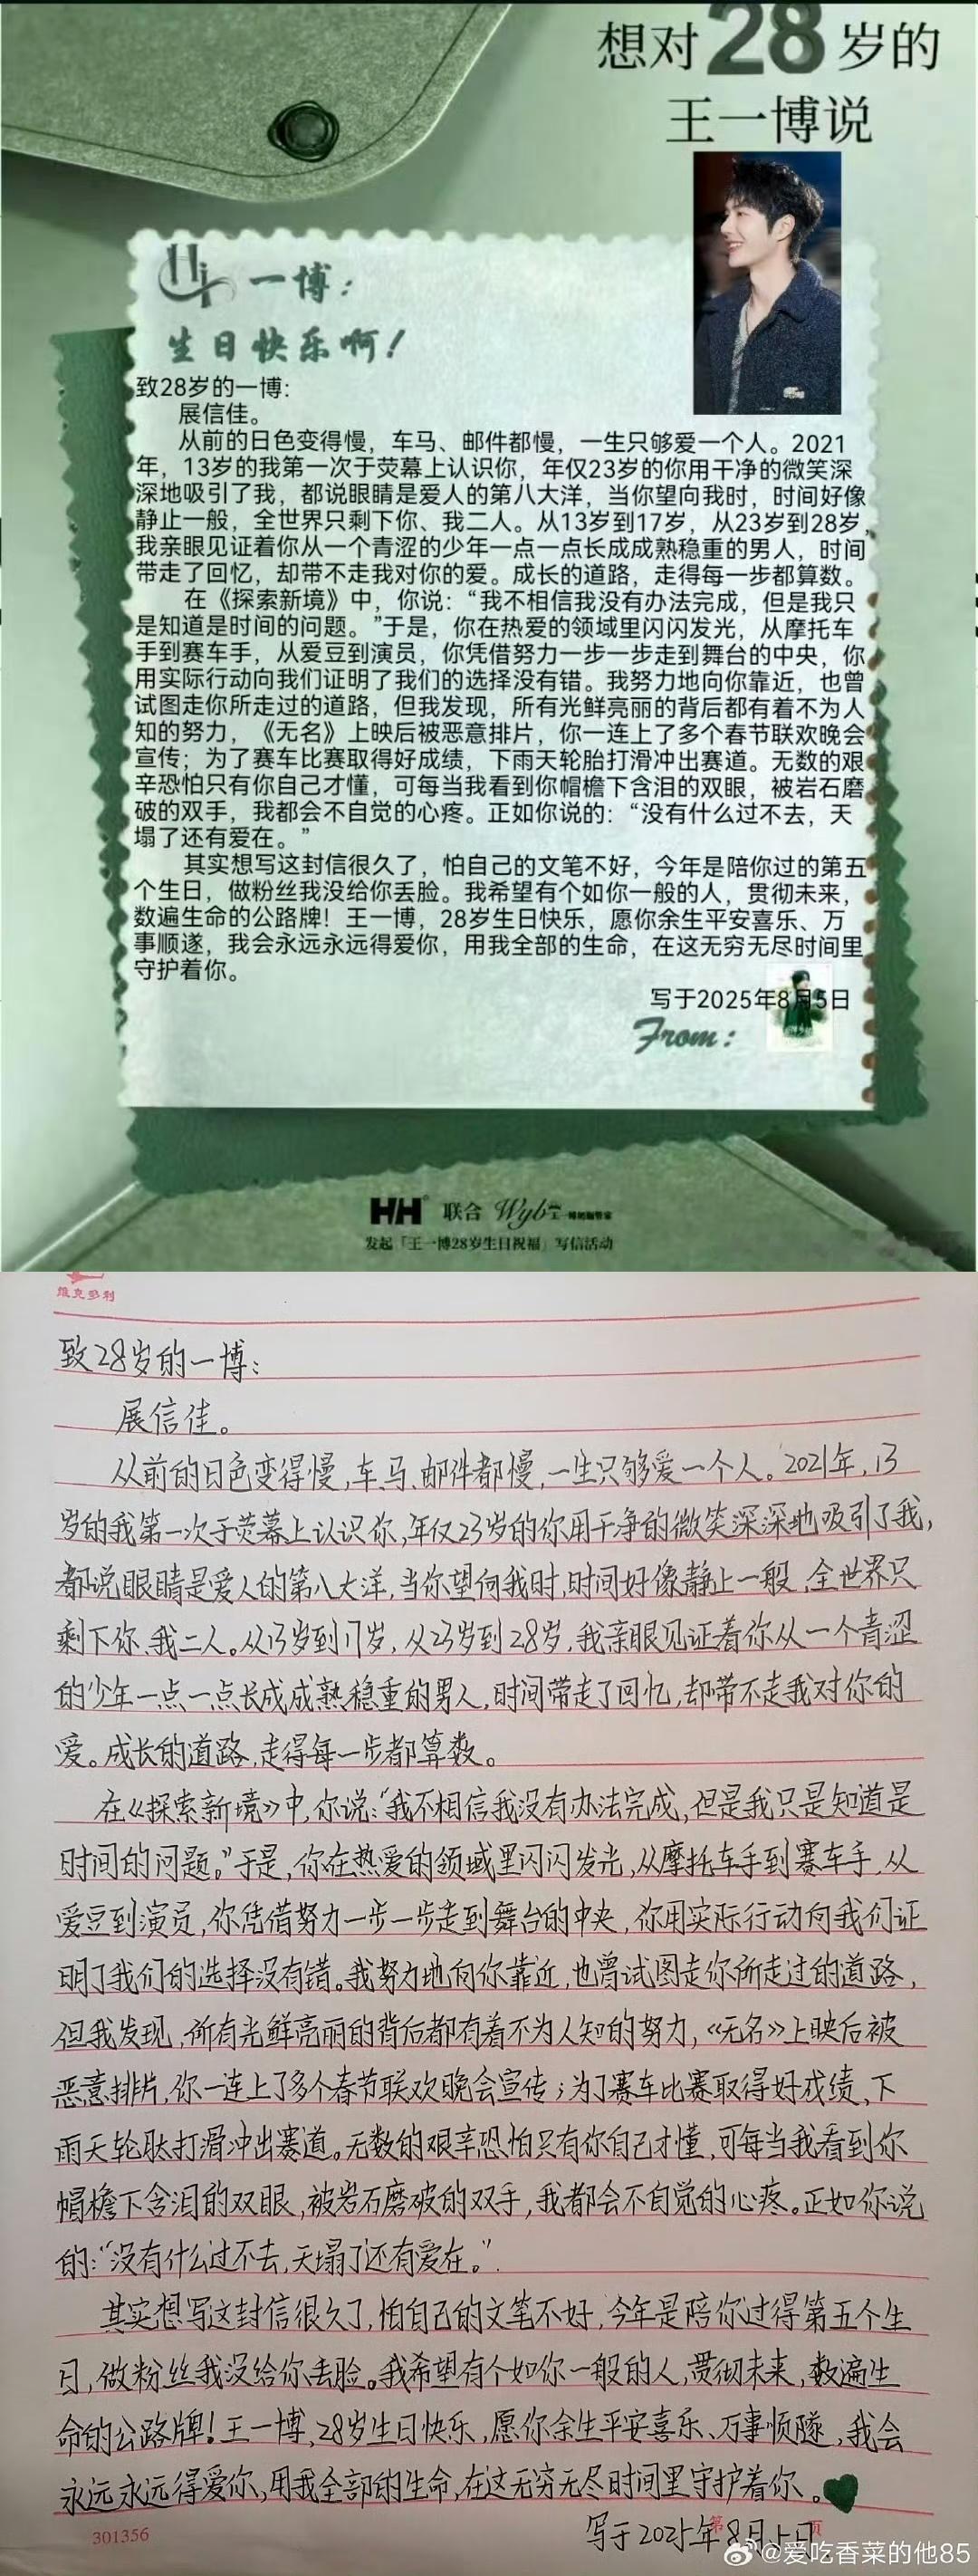 想对28岁的
王一博说
Hi 一博：
生日快乐啊！
致28岁的一博:
展信佳。
从前的日色变得慢，车马、邮件都慢，一生只够爱一个人。2021
年，13岁的我第一次于荧幕上认识你，年仅23岁的你用干净的微笑深
深地吸引了我，都说眼睛是爱人的第八大洋，当你望向我时，时间好像
静止一般，全世界只剩下你、我二人。从13岁到17岁，从23岁到28岁，
我亲眼见证着你从一个青涩的少年一点一点长成成熟稳重的男人，时间
带走了回忆，却带不走我对你的爱。成长的道路，走得每一步都算数。
在《探索新境》中，你说：“我不相信我没有办法完成，但是我只
是知道是时间的问题。”于是，你在热爱的领域里闪闪发光，从摩托车
手到赛车手，从爱豆到演员，你凭借努力一步一步走到舞台的中央，你
用实际行动向我们证明了我们的选择没有错。我努力地向你靠近，也曾
试图走你所走过的道路，但我发现，所有光鲜亮丽的背后都有着不为人
知的努力，《无名》上映后被恶意排片，你一连上了多个春节联欢晚会
宣传；为了赛车比赛取得好成绩，下雨天轮胎打滑冲出赛道。无数的艰
辛恐怕只有你自己才懂，可每当我看到你帽檐下含泪的双眼，被岩石磨
破的双手，我都会不自觉的心疼。正如你说的：“没有什么过不去，天
塌了还有爱在。”
其实想写这封信很久了，怕自己的文笔不好，今年是陪你过的第五
个生日，做粉丝我没给你丢脸。我希望有个如你一般的人，贯彻未来，
数遍生命的公路牌！王一博，28岁生日快乐，愿你余生平安喜乐、万
事顺遂，我会永远永远得爱你，用我全部的生命，在这无穷无尽时间里
守护着你。
写于2025年8月5日
From：
HH 联合 Wyb
发起「王一博28岁生日祝福」写信活动
维克多利
致28岁的一博：
展信佳。
从前的日色变得慢，车马、邮件都慢，一生只够爱一个人。2021年，13
岁的我第一次于荧幕上认识你，年仅23岁的你用干净的微笑深深地吸引了我，
都说眼睛是爱人的第八大洋，当你望向我时，时间好像静止一般，全世界只
剩下你、我二人。从13岁到17岁，从23岁到28岁，我亲眼见证着你从一个青涩
的少年一点一点长成成熟稳重的男人，时间带走了回忆，却带不走我对你的
爱。成长的道路，走得每一步都算数。
在《探索新境》中，你说：“我不相信我没有办法完成，但是我只是知道是
时间的问题。”于是，你在热爱的领域里闪闪发光，从摩托车手到赛车手，从
爱豆到演员，你凭借努力一步一步走到舞台的中央，你用实际行动向我们证
明了我们的选择没有错。我努力地向你靠近，也曾试图走你所走过的道路，
但我发现，所有光鲜亮丽的背后都有着不为人知的努力，《无名》上映后被
恶意排片，你一连上了多个春节联欢晚会宣传；为了赛车比赛取得好成绩，下
雨天轮胎打滑冲出赛道。无数的艰辛恐怕只有你自己才懂，可每当我看到你
帽檐下含泪的双眼，被岩石磨破的双手，我都会不自觉的心疼。正如你说
的：“没有什么过不去，天塌了还有爱在。”
其实想写这封信很久了，怕自己的文笔不好，今年是陪你过得第五个生
日，做粉丝我没给你丢脸。我希望有个如你一般的人，贯彻未来，数遍生
命的公路牌！王一博，28岁生日快乐，愿你余生平安喜乐、万事顺遂，我会
永远永远得爱你，用我全部的生命，在这无穷无尽时间里守护着你。
写于2025年8月5日
301356 第 页
@爱吃香菜的他85